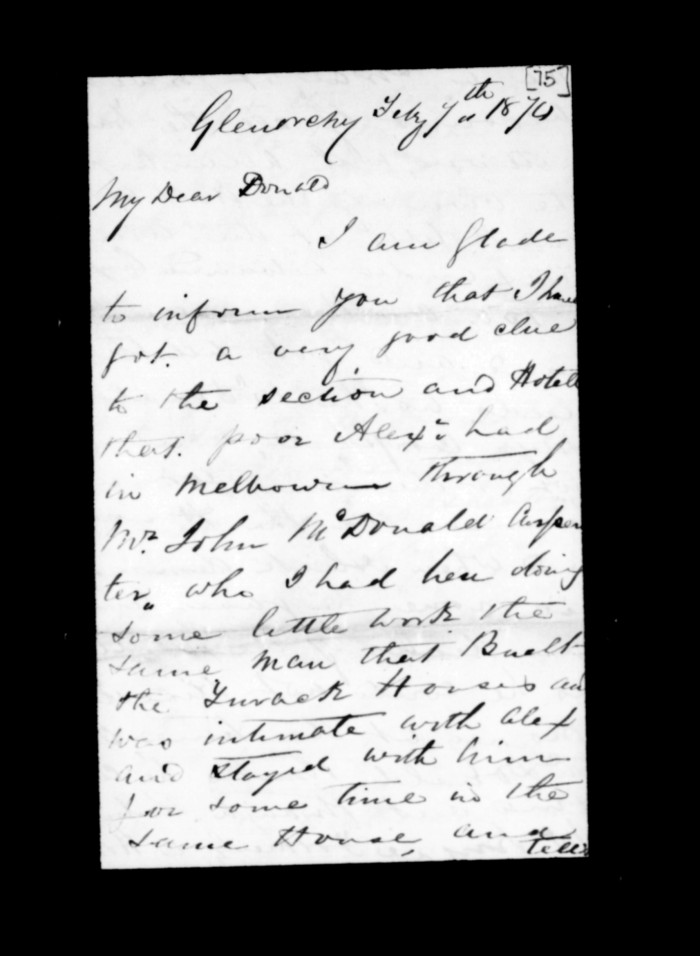 [75]
Glenorchy Feby 7th 1870
My Dear Donald
I am glade
to inform you that I have
got. a very good clue
to the section and Hotell
that. poor Alexr had
in Melbourne through
Mr. John McDonald Carpen
ter" who I had here doing
some little work the
same man that Buelt
the Turack Houses and
was intimate with Alex
and stayed with him
for some time in the
same House, and
tells